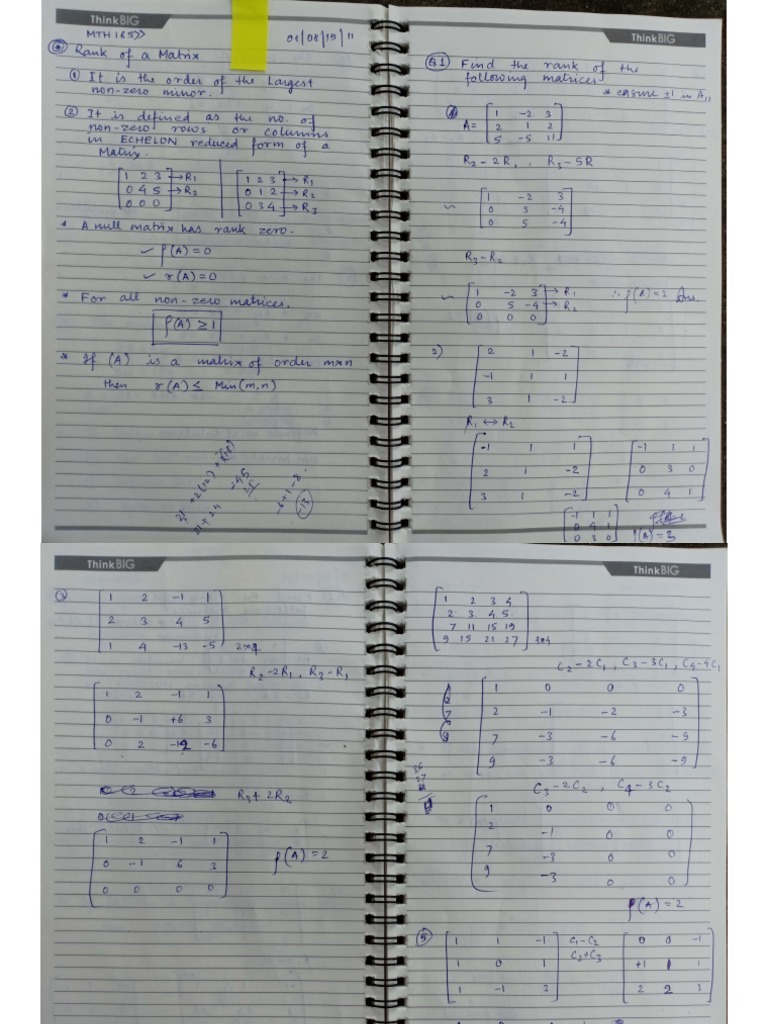 ThinkBIG
MTH 165>>
01/08/19/11
Rank of a Matrix
① It is the order of the Largest
non-zero minor.
② It is defined as the no. of
non-zero rows or columns
in ECHELON reduced form of a
Matrix.
1 2 3 → R1
0 4 5 → R2
0 0 0
1 2 3 → R1
0 1 2 → R2
0 3 4 → R3
* A null matrix has rank zero.
✓ ρ(A) = 0
✓ r(A) = 0
* For all non-zero matrices.
ρ(A) ≥ 1
* If (A) is a matrix of order m×n
then r(A) ≤ Min(m,n)
21 + 24
-45
-6+1-8
-13
ThinkBIG
Q1) Find the rank of the
following matrices
* ensure ±1 in A11
A = 1 -2 3
2 1 2
5 -5 11
R2-2R1, R3-5R
~ 1 -2 3
0 5 -4
0 5 -4
R3-R2
~ 1 -2 3 → R1
0 5 -4 → R2
0 0 0
∴ ρ(A)=2 Ans.
2) 2 1 -2
-1 1 1
3 1 -2
R1 ↔ R2
-1 1 1
2 1 -2
3 1 -2
-1 1 1
0 3 0
0 4 1
-1 1 1
0 4 1
0 3 0
ρ(A) = 3
ThinkBIG
1 2 -1 1
2 3 4 5
1 4 -13 -5
2×4
R2-2R1, R3-R1
1 2 -1 1
0 -1 +6 3
0 2 -12 -6
R3+2R2
1 2 -1 1
0 -1 6 3
0 0 0 0
ρ(A) = 2
ThinkBIG
1 2 3 4
2 3 4 5
7 11 15 19
9 15 21 27 4×4
C2-2C1, C3-3C1, C4-4C1
1 0 0 0
2 -1 -2 -3
7 -3 -6 -9
9 -3 -6 -9
36
27
C3-2C2, C4-3C2
1 0 0 0
2 -1 0 0
7 -3 0 0
9 -3 0 0
ρ(A) = 2
⑤ 1 1 -1
1 0 1
1 -1 3
C1-C2
C2+C3
0 0 -1
+1 1 1
2 2 3